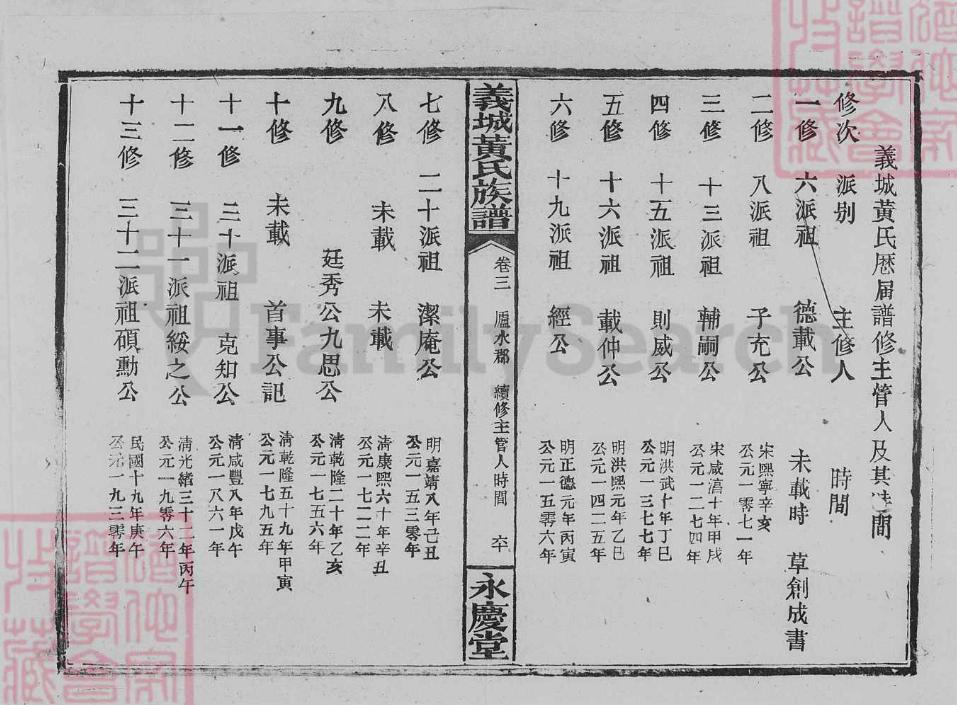 義城黃氏歷届譜修主管人及其時間
修次 派別 主修人 時間
一修 六派祖 德載公 未載時 草創成書
二修 八派祖 子充公 宋熙寧辛亥 公元一零七一年
三修 十三派祖 輔嗣公 宋咸淳十年甲戌 公元一二七四年
四修 十五派祖 則威公 明洪武十年丁巳 公元一三七七年
五修 十六派祖 載仲公 明洪熙元年乙巳 公元一四二五年
六修 十九派祖 經公 明正德元年丙寅 公元一五零六年
義城黃氏族譜 卷三 廬水郡 續修主管人時間 永慶堂
七修 二十派祖 潔庵公 明嘉靖八年己丑 公元一五三零年
八修 未載 未載 清康熙六十年辛丑 公元一七二二年
九修 廷秀公九思公 清乾隆二十年乙亥 公元一七五六年
十修 未載 首事公記 清乾隆五十九年甲寅 公元一七九五年
十一修 三十派祖 克知公 清咸豐八年戊午 公元一八六一年
十二修 三十一派祖綏之公 清光緒三十二年丙午 公元一九零六年
十三修 三十二派祖碩勳公 民國十九年庚午 公元一九三零年
FamilySearch